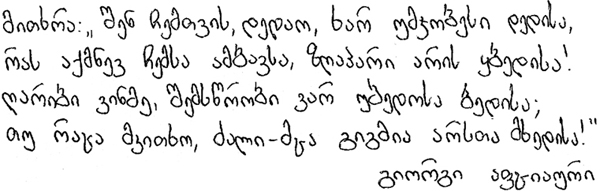 მითხრა: „შენ ჩემთვის, დედაო, ხარ უმჯობესი დედისა,
რას აქმნევ ჩემსა ამბავსა, ზღაპარი არის ყბედისა!
ღარიბი ვინმე, შემსწრობი ვარ უბედოსა ბედისა;
თუ რაცა მკითხო, ძალი-მცა გიგმია არსთა მხედისა!"
გიორგი აფციაური